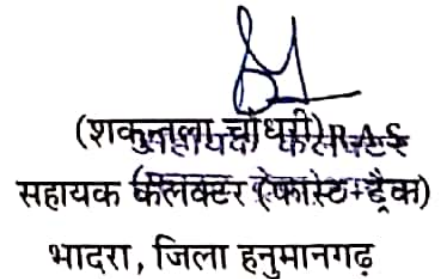 (शकुन्तला चौधरी) R.A.S
सहायक कलक्टर (फास्ट-ट्रैक)
भादरा, जिला हनुमानगढ़